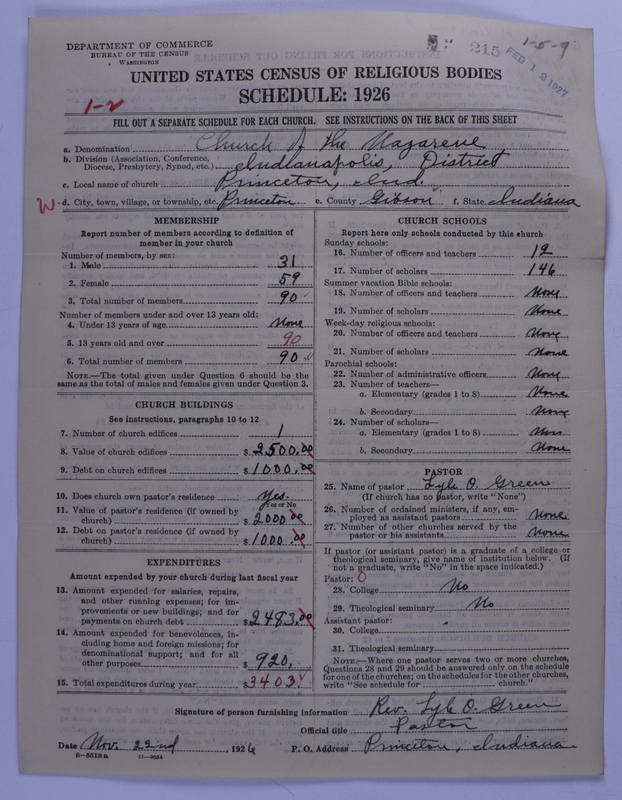 DEPARTMENT OF COMMERCE
BUREAU OF THE CENSUS
WASHINGTON
215
FEB 19 1927
1-5-9
UNITED STATES CENSUS OF RELIGIOUS BODIES
SCHEDULE: 1926
1-2
FILL OUT A SEPARATE SCHEDULE FOR EACH CHURCH. SEE INSTRUCTIONS ON THE BACK OF THIS SHEET
a. Denomination Church of the Nazarene
b. Division (Association, Conference, Diocese, Presbytery, Synod, etc.) Indianapolis, District
c. Local name of church Princeton, Ind.
W d. City, town, village, or township, etc. Princeton e. County Gibson f. State Indiana
MEMBERSHIP
Report number of members according to definition of
member in your church
Number of members, by sex:
1. Male 31
2. Female 59
3. Total number of members 90
Number of members under and over 13 years old:
4. Under 13 years of age None
5. 13 years old and over 90
6. Total number of members 90
NOTE.—The total given under Question 6 should be the
same as the total of males and females given under Question 3.
CHURCH BUILDINGS
See instructions, paragraphs 10 to 12
7. Number of church edifices 1
8. Value of church edifices $ 2500.00
9. Debt on church edifices $ 1000.00
10. Does church own pastor's residence Yes.
Yes or No
11. Value of pastor's residence (if owned by
church) $ 2000 00
12. Debt on pastor's residence (if owned by
church) $ 1000.00
EXPENDITURES
Amount expended by your church during last fiscal year
13. Amount expended for salaries, repairs,
and other running expenses; for im-
provements or new buildings; and for
payments on church debt $ 2483.00
14. Amount expended for benevolences, in-
cluding home and foreign missions; for
denominational support; and for all
other purposes $ 920.
15. Total expenditures during year $ 3403.
CHURCH SCHOOLS
Report here only schools conducted by this church
Sunday schools:
16. Number of officers and teachers 12
17. Number of scholars 146
Summer vacation Bible schools:
18. Number of officers and teachers None
19. Number of scholars None
Week-day religious schools:
20. Number of officers and teachers None
21. Number of scholars None
Parochial schools:
22. Number of administrative officers None
23. Number of teachers—
a. Elementary (grades 1 to 8) None
b. Secondary None
24. Number of scholars—
a. Elementary (grades 1 to 8) None
b. Secondary None
PASTOR
25. Name of pastor Lyle O. Green
(If church has no pastor, write "None")
26. Number of ordained ministers, if any, em-
ployed as assistant pastors None
27. Number of other churches served by the
pastor or his assistants None
If pastor (or assistant pastor) is a graduate of a college or
theological seminary, give name of institution below. (If
not a graduate, write "No" in the space indicated.)
Pastor: O
28. College No
29. Theological seminary No
Assistant pastor:
30. College
31. Theological seminary
NOTE.—Where one pastor serves two or more churches,
Questions 28 and 29 should be answered only on the schedule
for one of the churches; on the schedules for the other churches,
write "See schedule for church."
Signature of person furnishing information Rev. Lyle O. Green
Official title Pastor
Date Nov. 22nd, 1926 P. O. Address Princeton, Indiana
8—5518 a 11—9054